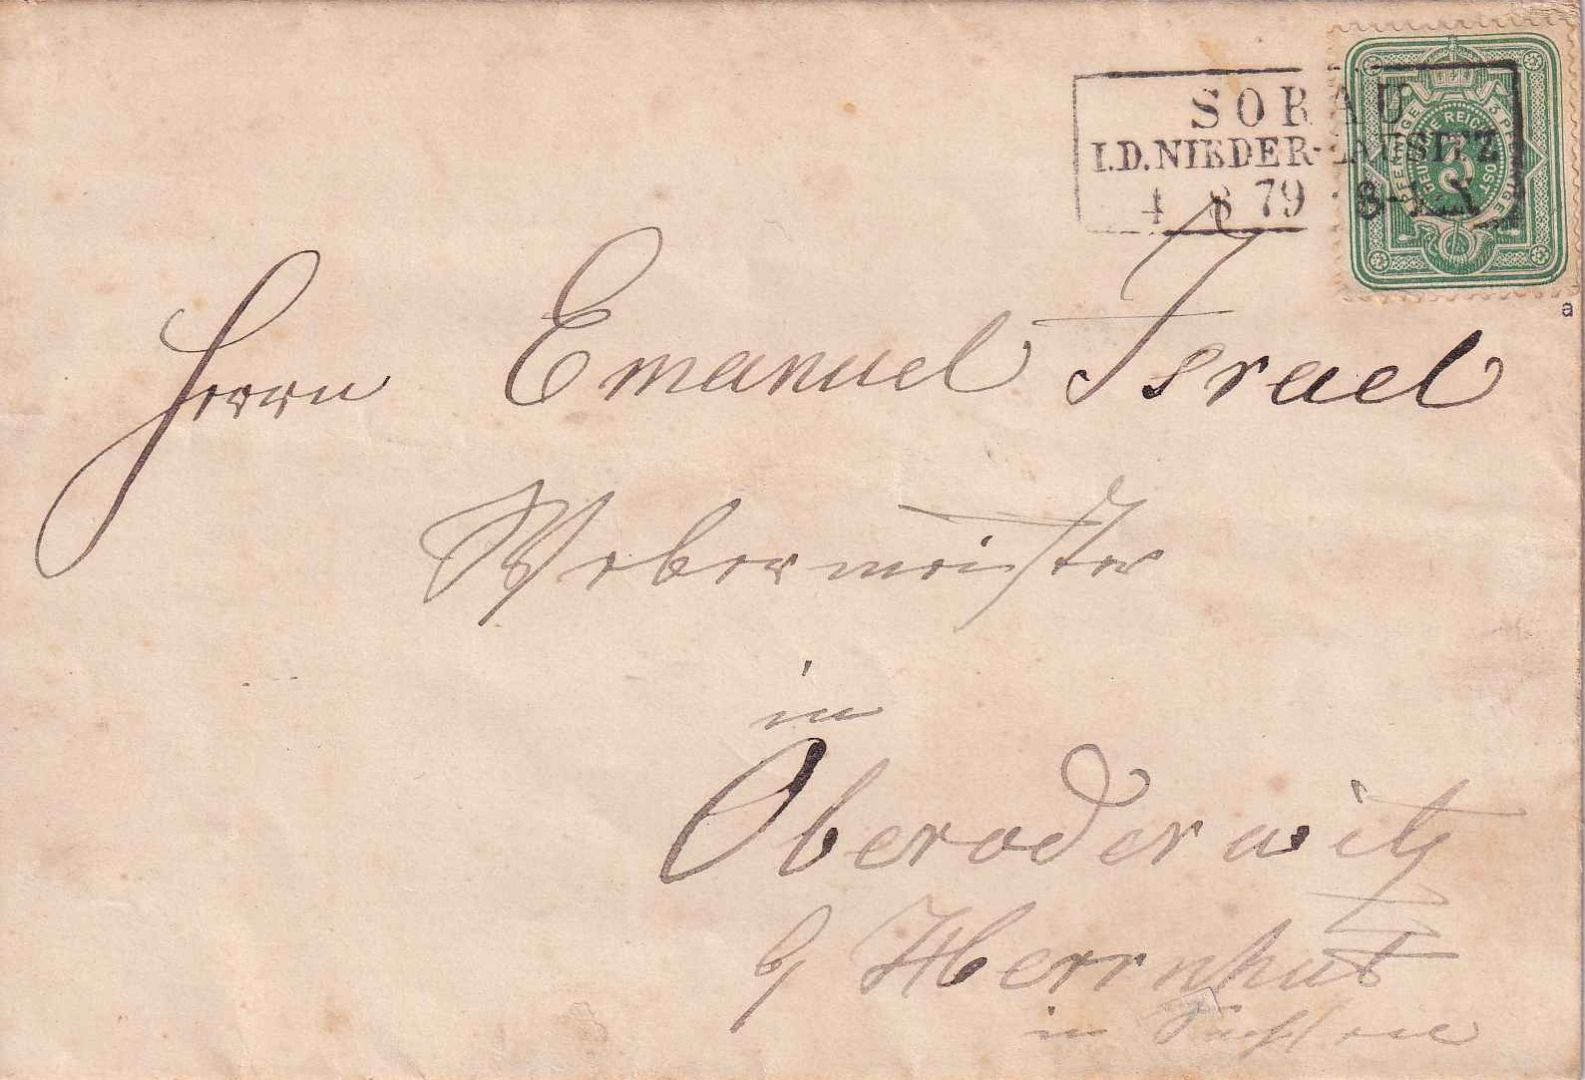 SORAU
I.D.NIEDER-LAUSITZ
4 8 79 8-9.V.
3 PFENNIGE
DEUTSCHE REICHS-POST
3
a
Herrn Emanuel Israel
Webermeister
in
Oberoderwitz
b/ Herrnhut
in Sachsen